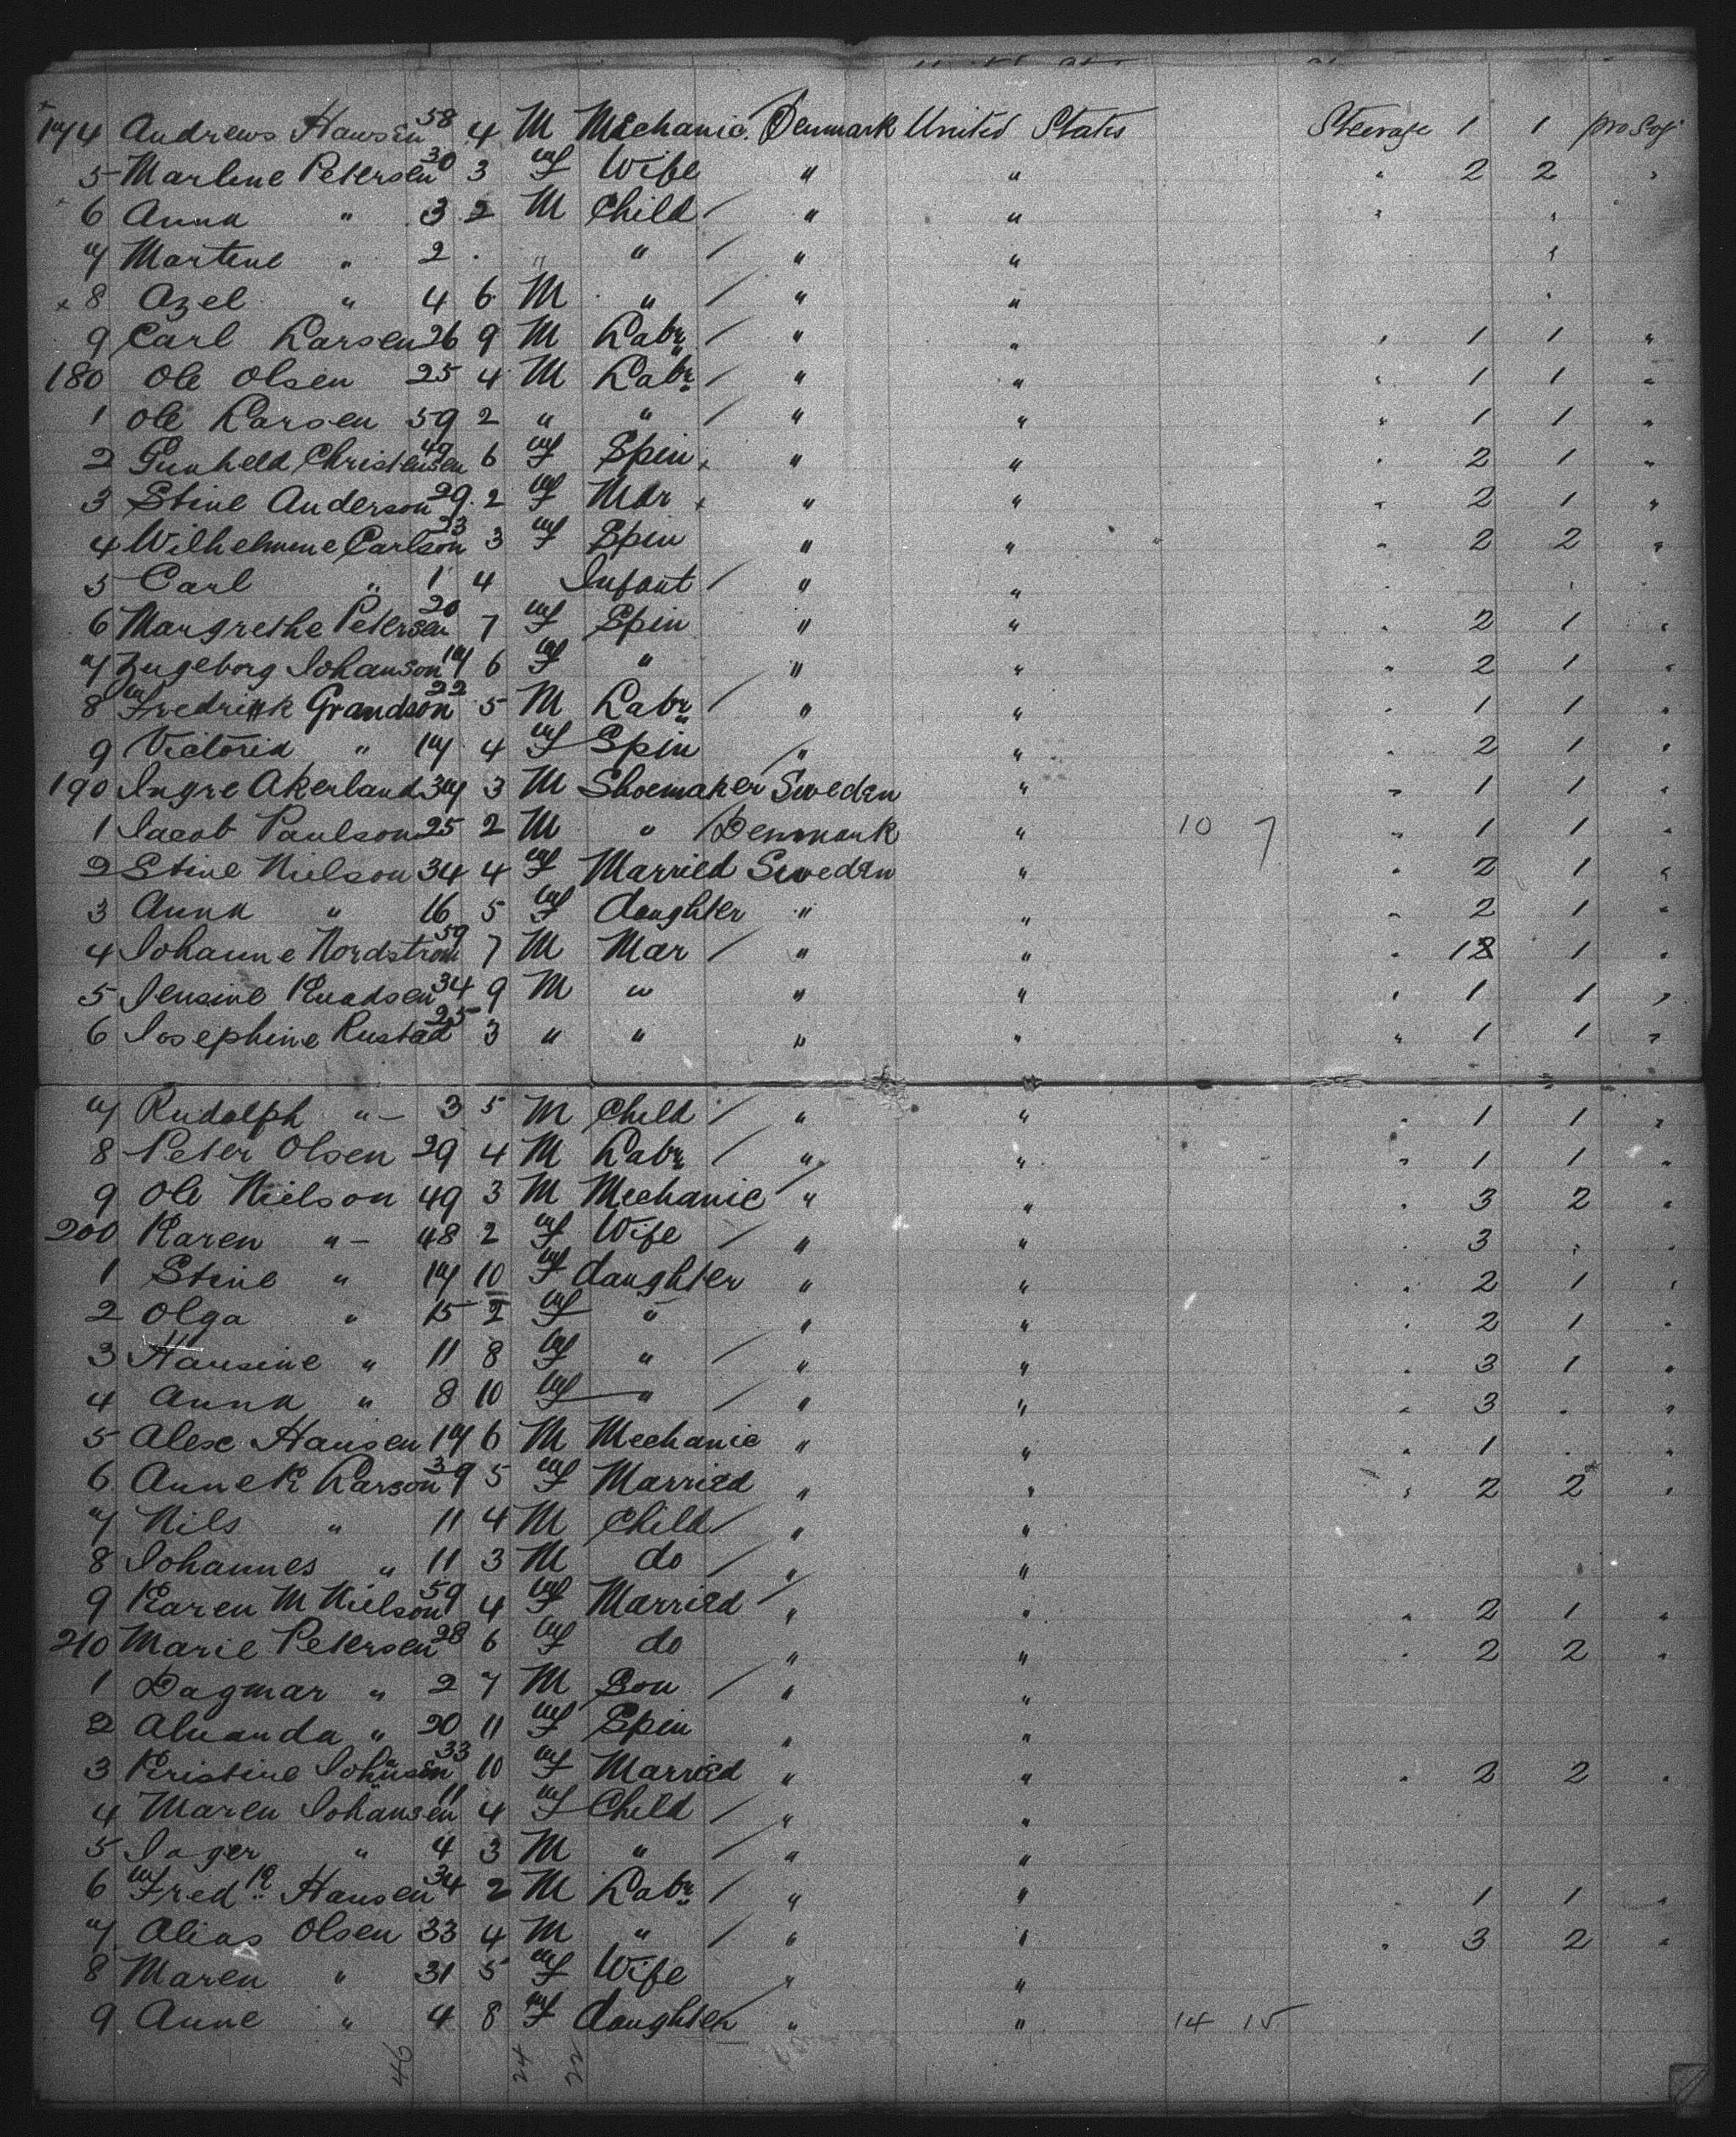 174 Andrews Hansen 58 4 M Mechanic Denmark United States Steerage 1 1
5 Marlene Petersen 30 3 F Wife " " " 2 2 "
6 Anna " 3 2 M Child " " " "
7 Martene " 2 " " " " "
8 Azel " 4 6 M " " " "
9 Carl Larsen 26 9 M Labr " " " 1 1 "
180 Ole Olsen 25 4 M Labr " " " 1 1 "
1 Ole Larsen 59 2 " " " " " 1 1 "
2 Gunheld Christensen 49 6 F Spin " " " 2 1 "
3 Stine Anderson 29 2 F Mar " " " 2 1 "
4 Wilhelmine Carlson 23 3 F Spin " " " 2 2 "
5 Carl " 1 4 Infant " "
6 Margrethe Petersen 20 7 F Spin " " " 2 1 "
7 Ingeborg Johanson 17 6 F " " " " 2 1 "
8 Fredrick Grandson 22 5 M Labr " " " 1 1 "
9 Victoria " 17 4 F Spin " " " 2 1 "
190 Ingre Akerland 37 3 M Shoemaker Sweden " " 1 1 "
1 Jacob Paulson 25 2 M " Denmark " 10 7 " 1 1 "
2 Stine Nielson 34 4 F Married Sweden " " 2 1 "
3 Anna " 16 5 F daughter " " " 2 1 "
4 Johanne Nordstrom 59 7 M Mar " " " 1 1 "
5 Jensine Knadsen 34 9 M " " " " 1 1 "
6 Josephine Rustad 25 3 " " " " " 1 1 "
7 Rudolph " 3 5 M Child " " " 1 1 "
8 Peter Olsen 29 4 M Labr " " " 1 1 "
9 Ole Nielson 49 3 M Mechanic " " " 3 2 "
200 Karen " 48 2 F Wife " " " 3 " "
1 Stine " 17 10 F daughter " " " 2 1 "
2 Olga " 15 2 F " " " " 2 1 "
3 Hansine " 11 8 F " " " " 3 1 "
4 Anna " 8 10 F " " " " 3 " "
5 Alex Hansen 17 6 M Mechanic " " " 1 " "
6 Anne K Larson 39 5 F Married " " " 2 2 "
7 Nils " 11 4 M Child " "
8 Johannes " 11 3 M do " "
9 Karen M Nielson 59 4 F Married " " " 2 1 "
210 Marie Petersen 28 6 F do " " " 2 2 "
1 Dagmar " 2 7 M Son " "
2 Aluanda " 20 11 F Spin " "
3 Kristine Johnsen 33 10 F Married " " " 2 2 "
4 Maren Johansen 11 4 F Child " "
5 Jager " 4 3 M " " "
6 Fredk Hansen 34 2 M Labr " " " 1 1 "
7 Alias Olsen 33 4 M " " " " 3 2 "
8 Maren " 31 5 F Wife " "
9 Anne " 4 8 F daughter " " 14 15
46 24 22